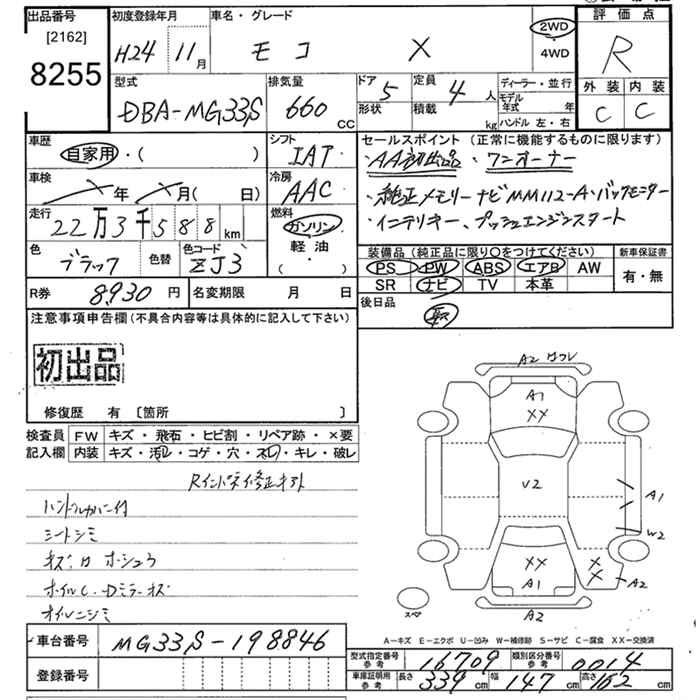 出品番号 初度登録年月 車名・グレード 評価点
[2162] 8255 H24 11月 モコ X 2WD 4WD R
外装 内装
C C
型式 排気量 ドア 定員 ディーラー・並行
DBA-MG33S 660 CC 5 4人 モデル年式 年
形状 積載 kg ハンドル 左・右
車歴 シフト セールスポイント (正常に機能するものに限ります)
自家用・( ) IAT ・AA初出品、ワンオーナー
車検 冷房
年 月(日) AAC ・純正メモリーナビMM112-A・バックモニター
走行 燃料 ・インテリキー、プッシュエンジンスタート
22万3千588km ガソリン
軽油・( )
色 色替 色コード
ブラック ZJ3
装備品(純正品に限り○をつけてください) 新車保証書
PS PW ABS エアB AW 有・無
SR ナビ TV 本革
R券 8,930円 名変期限 月 日
後日品
注意事項申告欄(不具合内容等は具体的に記入して下さい)
初出品
修復歴 有 〔箇所 〕
検査員 FW キズ・飛石・ヒビ割・リペア跡・×要
記入欄 内装 キズ・汚レ・コゲ・穴・スレ・キレ・破レ
Rインパネ修正キズ
ハンドルカバー付
シートシミ
ホイルC・Dミラーキズ
オイルニジミ
A2
A1
XX
V2
A1
W2
XX
A1
XX
A2
A2
スペア
A-キズ E-エクボ U-凹み W-補修跡 S-サビ C-腐食 XX-交換済
車台番号 MG33S-198846
登録番号
型式指定番号 参考 16709 類別区分番号 参考 0014
車庫証明用 参考 長さ 339cm 幅 147cm 高さ 162cm